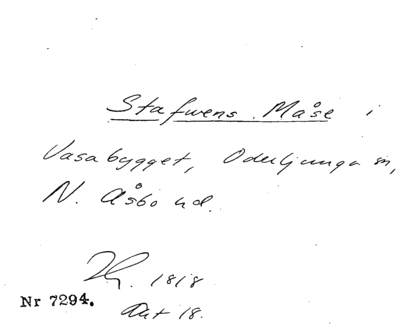 Stafwens Måse i
Vasabygget, Oderljunga sn,
N. Åsbo hd.
1818
Nr 7294.
Akt 18.